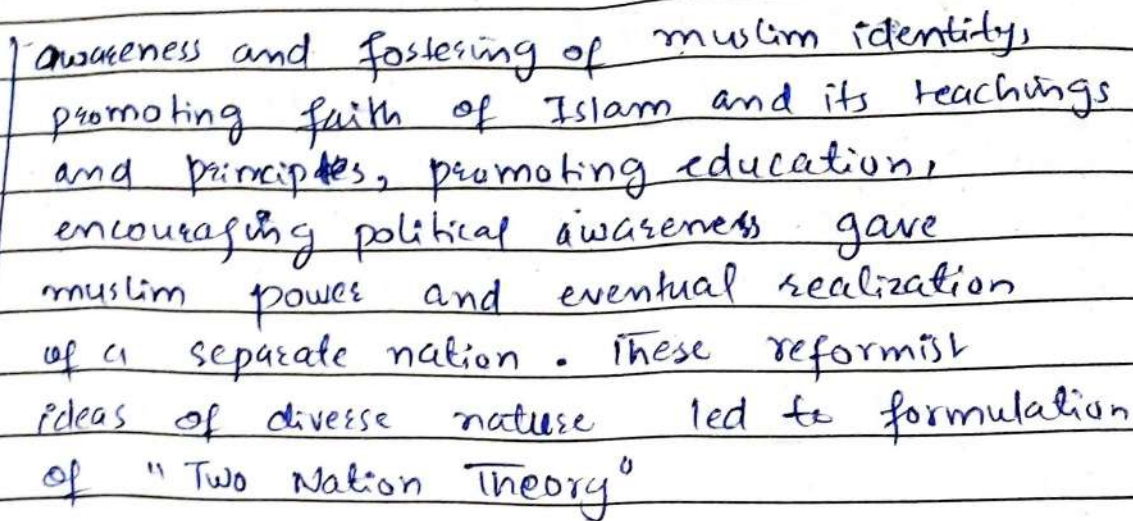 awareness and fostering of muslim identity,
promoting faith of Islam and its teachings
and principles, promoting education,
encouraging political awareness gave
muslim power and eventual realization
of a separate nation. These reformist
ideas of diverse nature led to formulation
of "Two Nation Theory"